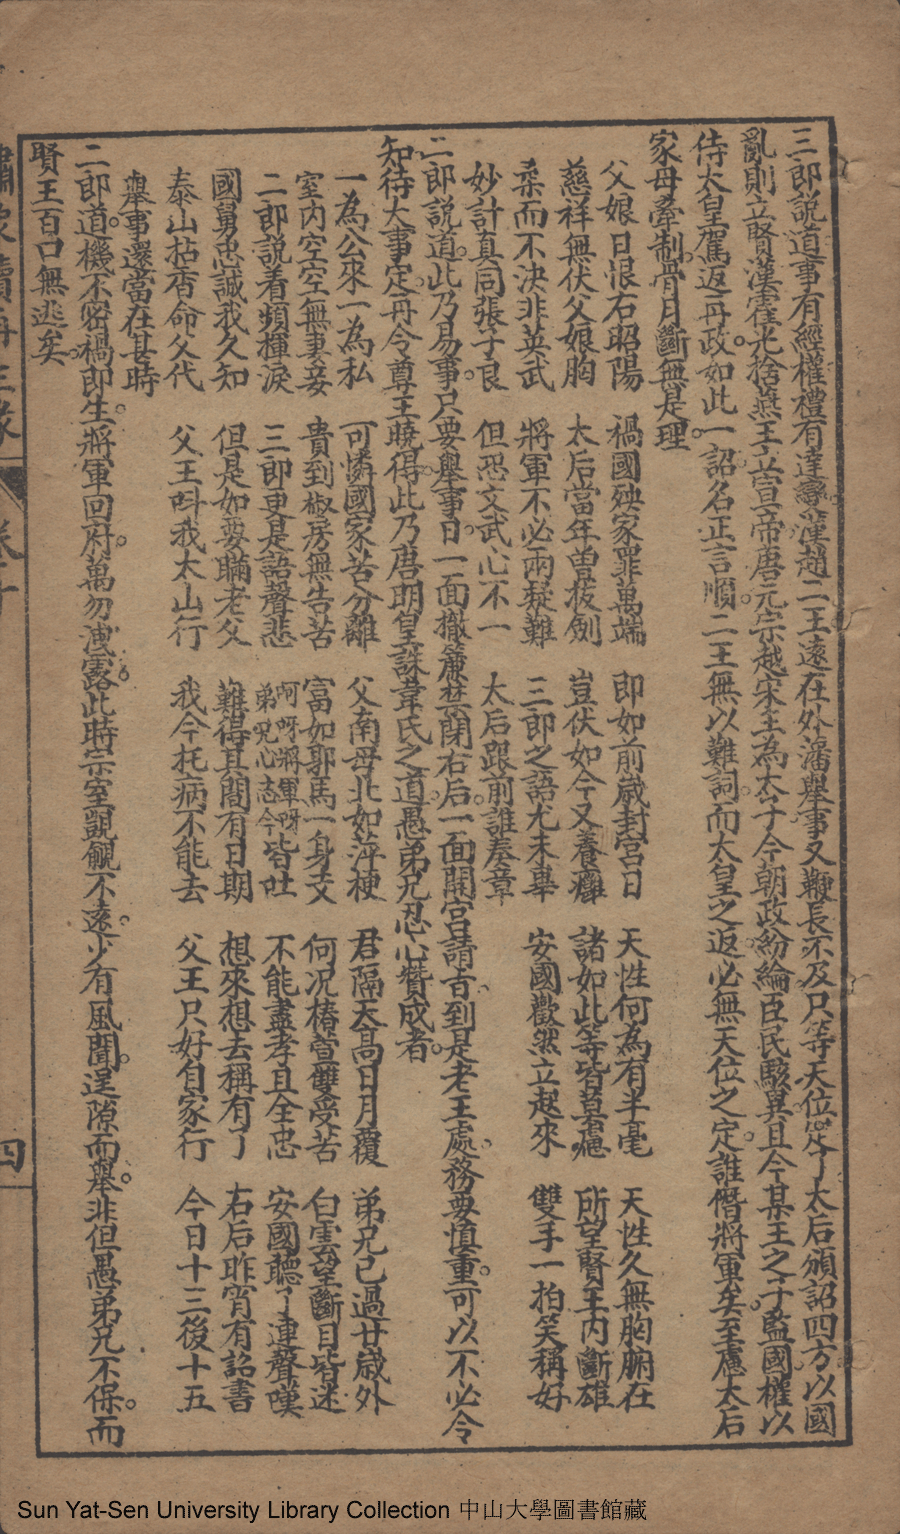 三郎説道事有經權禮有達變漢趙二王遠在外藩舉事又鞭長不及只等天位定了太后頒詔四方以國
亂則立賢漢霍光捨燕王立宣帝唐元宗越宋王為太子今朝政紛綸臣民駭異且今某王之子監國權以
侍太皇駕返再政如此一詔名正言順二王無以難詞而太皇之返必無天位之定誰僭將軍矣至慮太后
家母牽制骨月斷無是理
父娘日恨右昭陽 禍國殃家罪萬端 即如前歲封宮日 天性何為有半毫 天性久無胸腑在
慈祥無伏父娘胸 太后當年曾拔劍 豈伏如今又養癰 諸如此等皆莫慮 所望賢王内斷雄
柔而不決非英武 將軍不必兩疑難 三郎之語尤未畢 安國歡然立起來 雙手一拍笑稱好
妙計真同張子良 但恐文武心不一 太后跟前誰奏章
二郎説道此乃易事只要舉事日一面撤簾禁閉右后一面開宮請吉到是老王處務要慎重可以不必令
知待大事定再令尊王曉得此乃唐明皇誅韋氏之道愚弟兄忍心贊成者
一為公來一為私 可憐國家苦分離 父南母北如萍梗 君隔天高日月覆 弟兄已過廿歲外
室内空空無妻妾 貴到椒房無告苦 富如郭馬一身支 何况椿萱雙受苦 白雲望斷目皆迷
二郎説着頻揮淚 三郎更是語聲悲 呵呀將軍呀弟兄心志今皆吐 不能盡孝且全忠 安國聽了連聲嘆
國舅忠誠我久知 但是如要瞞老父 難得其間有日期 想來想去稱有了 右后昨宵有詔書
泰山拈香命父代 父王呌我太山行 我今托病不能去 父王只好自家行 今日十三後十五
舉事還當在甚時
二郎道機不密禍即生將軍回府萬勿洩露此時宗室覬觎不遠少有風聞逞隙而舉非但愚弟兄不保而
賢王百口無逃矣
四
Sun Yat-Sen University Library Collection 中山大學圖書館藏